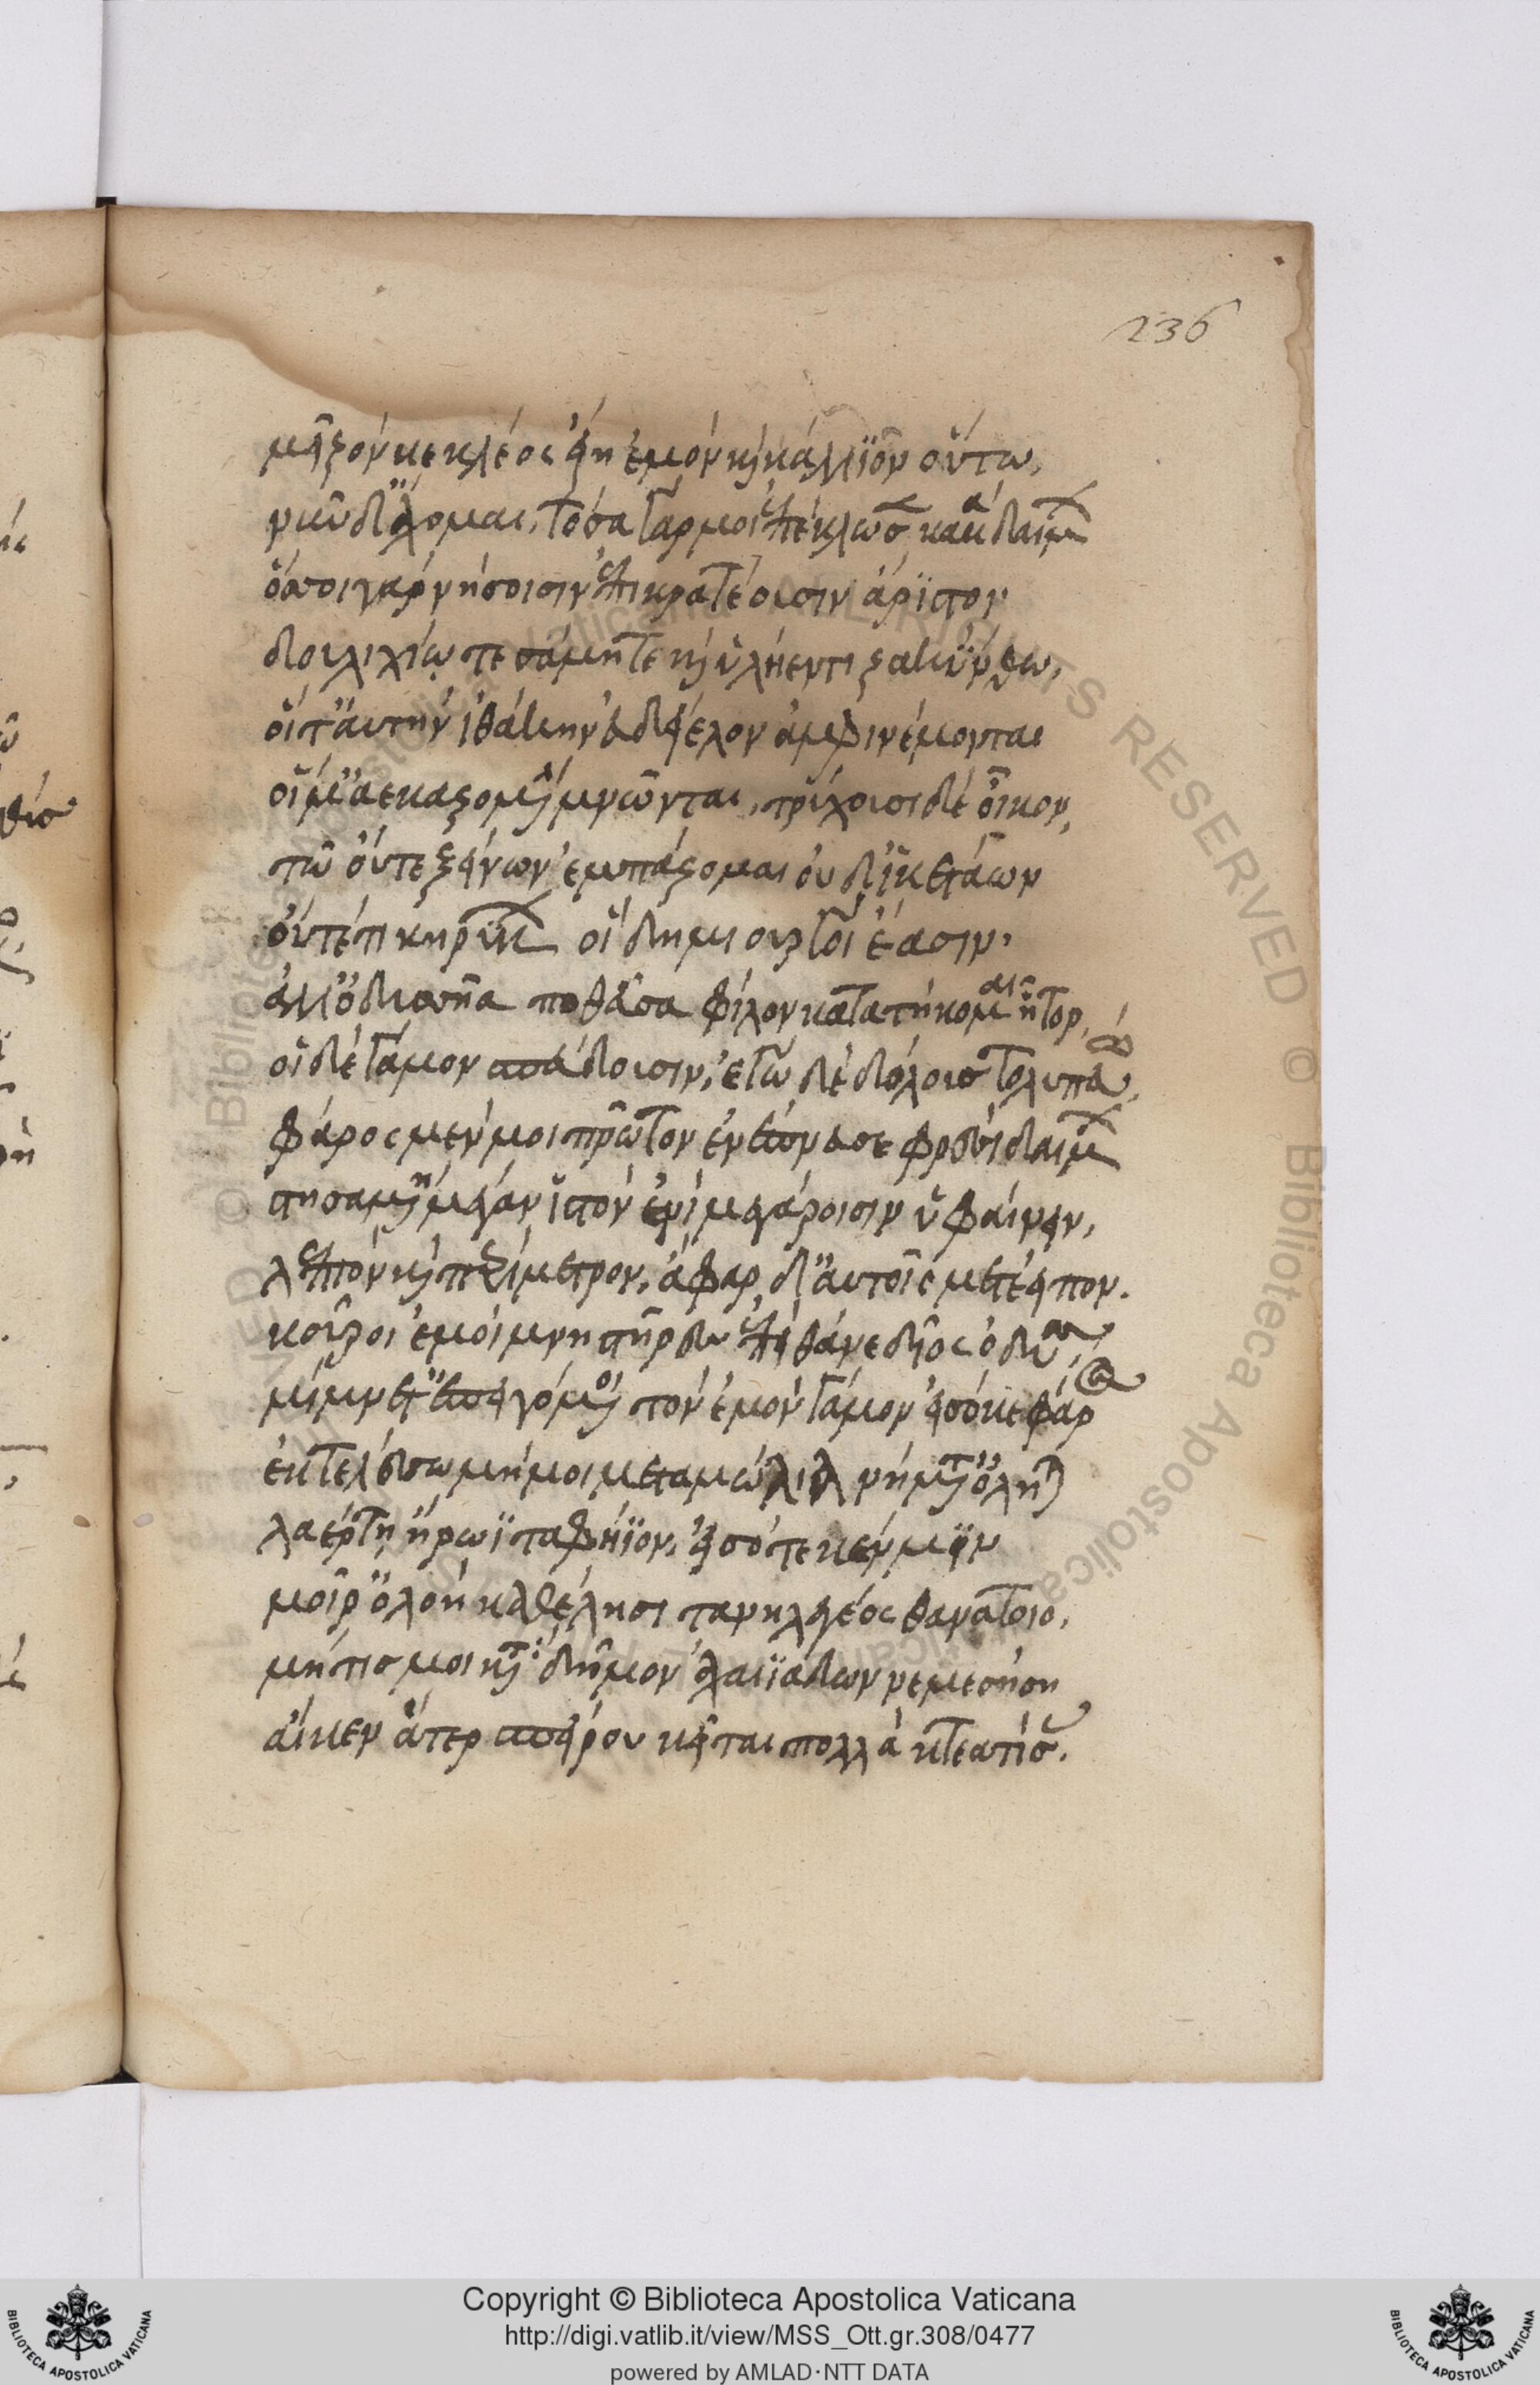 236
μεῖζόν κε κλέος εἴη ἐμὸν καὶ κάλλιον οὕτω,
νῦν δ' ἄχομαι, τόσα γάρ μοι ἐπέκλωσε κακὰ δαίμων
ὅσσοι γὰρ νήσοισιν ἐπικρατέουσιν ἄριστοι
δουλιχίω τε σάμη τε καὶ ὑλήεντι ζακύνθω,
οἵ τ' αὐτὴν ἰθάκην εὐδείελον ἀμφινέμονται
οἵ μ' ἀεκαζομένην μνῶνται, τρύχουσι δὲ οἶκον,
τῶ οὔτε ξείνων ἐμπάζομαι οὐδ' ἱκετάων
οὔτέ τι κηρύκων οἳ δημιουργοὶ ἔασιν.
ἀλλ' ὀδυσσῆα ποθεῦσα φίλον κατατήκομαι ἦτορ,
οἱ δὲ γάμον σπεύδουσιν, ἐγὼ δὲ δόλους τολυπεύω,
φᾶρος μέν μοι πρῶτον ἐνέπνευσε φρεσὶ δαίμων
στησαμένη μέγαν ἱστὸν ἐνὶ μεγάροισιν ὑφαίνειν,
λεπτὸν καὶ περίμετρον, ἄφαρ δ' αὐτοῖς μετέειπον.
κοῦροι ἐμοὶ μνηστῆρες ἐπεὶ θάνε δῖος ὀδυσσεύς,
μίμνετ' ἐπειγόμενοι τὸν ἐμὸν γάμον εἰσόκε φᾶρος
ἐκτελέσσω μή μοι μεταμώλια νήματ' ὄληται
λαέρτη ἥρωϊ ταφήϊον, εἰσότε κέν μιν
μοῖρ' ὀλοὴ καθέλησι τανηλεγέος θανάτοιο,
μή τίς μοι κατὰ δῆμον ἀχαιϊάδων νεμεσήση
αἴ κεν ἄτερ σπείρου κεῖται πολλὰ κτεατίσσας.
Copyright © Biblioteca Apostolica Vaticana
http://digi.vatlib.it/view/MSS_Ott.gr.308/0477
powered by AMLAD·NTT DATA